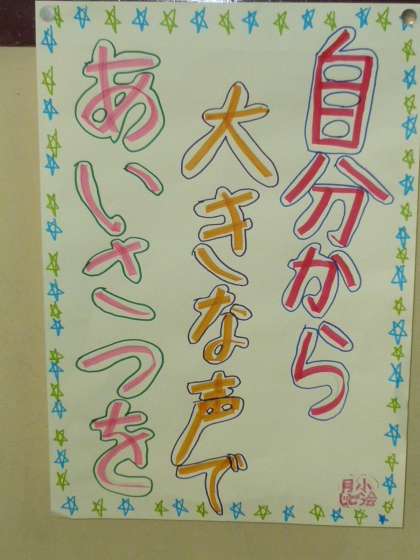 自分から
大きな声で
あいさつを